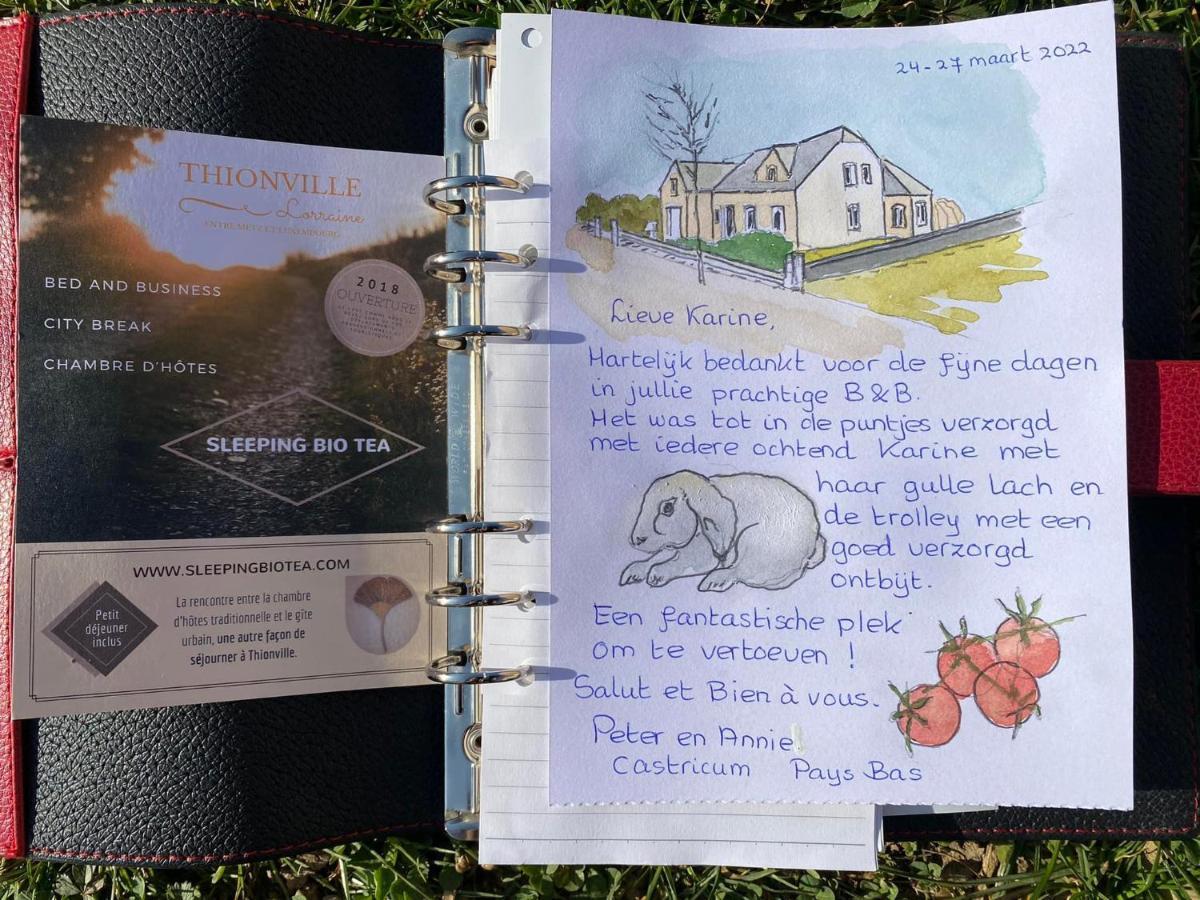 THIONVILLE
Lorraine
ENTRE METZ ET LUXEMBOURG
BED AND BUSINESS
CITY BREAK
CHAMBRE D'HÔTES
2018
OUVERTURE
SLEEPING BIO TEA
WWW.SLEEPINGBIOTEA.COM
Petit
déjeuner
inclus
La rencontre entre la chambre
d'hôtes traditionnelle et le gîte
urbain, une autre façon de
séjourner à Thionville.
WORLD WIDE
24-27 maart 2022
Lieve Karine,
Hartelijk bedankt voor de fijne dagen
in jullie prachtige B&B.
Het was tot in de puntjes verzorgd
met iedere ochtend Karine met
haar gulle lach en
de trolley met een
goed verzorgd
ontbijt.
Een fantastische plek
om te vertoeven !
Salut et Bien à vous.
Peter en Annie
Castricum Pays Bas